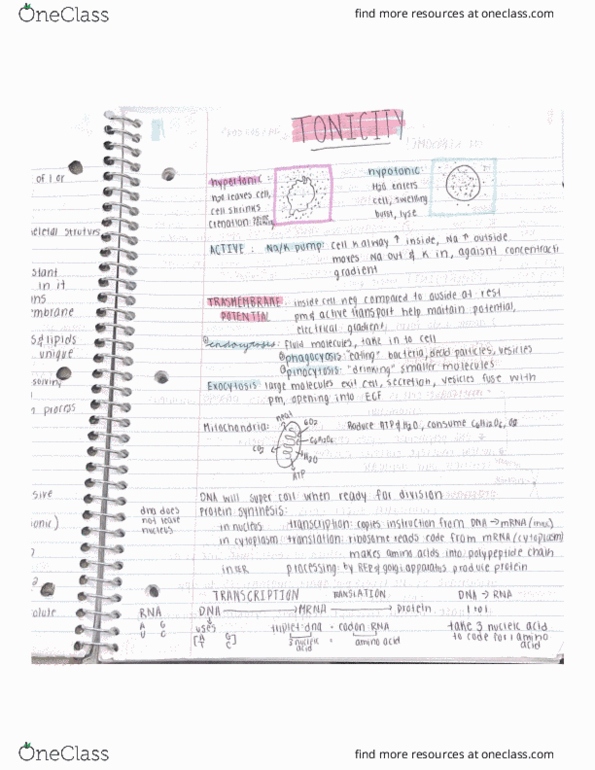 OneClass
find more resources at oneclass.com
TONICITY
of 1 or
skeletal
in it
membrane
& lipids
unique
process
hypertonic:
H2O leaves cell,
cell shrinks
crenation:
hypotonic
H2O enters
cell, swelling
burst, lyse
ACTIVE: Na/K pump: cell K alway ↑ inside, Na ↑ outside
moves Na out & K in, agaisnt concentrati
gradient
TRASMEMBRANE
POTENTIAL
: inside cell neg compared to ouside at rest
pm & active transport help maitain potential,
electrical gradient
endocytosis: Fluid molecules, take in to cell
phagocytosis: "eating" bacteria, dead particles, vesicles
pinocytosis: "drinking" smaller molecules
EXOCYTOSIS large molecules exit cell, secretion, vesicles fuse with
pm, opening into ECF
Mitochondria:
heat
CO2
H2O
ATP
ATP & H2O, consume C6H12O6, O2
DNA will super coil when ready for division
dna does
not leave
nucleus
Protein synthesis:
in nucleus transcription: copies instruction from DNA → mRNA (nuc)
in cytoplasm translation: ribosome reads code from mRNA (cytoplasm)
makes amino acids into polypeptide chain
in RER processing: by RER & golgi apparatus produce protein
TRANSCRIPTION TRANSLATION DNA → RNA
RNA DNA → MRNA → Protein 1:1
A G
U C
uses
[A G]
[T C]
triplet: dna · codon RNA
3 nucleic
acid
amino acid
take 3 nucleic acid
to code for 1 amino
acid
OneClass
find more resources at oneclass.com